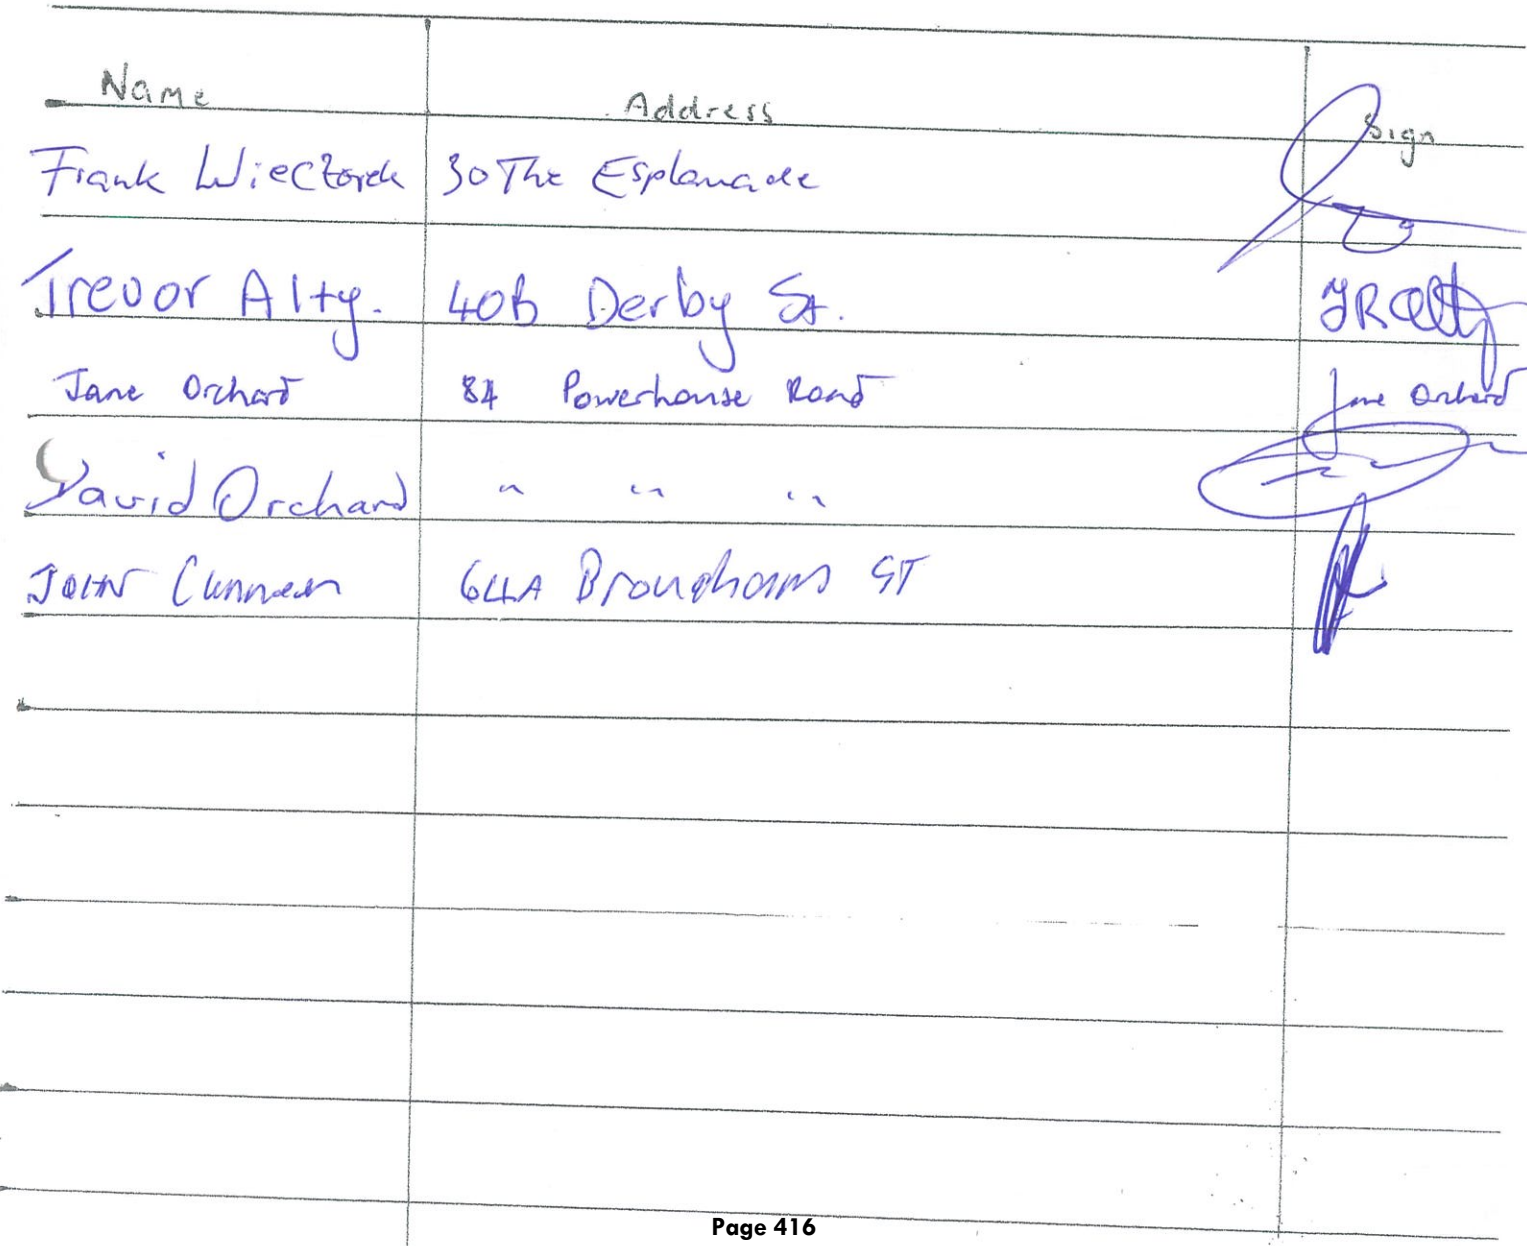 Name Address Sign
Frank Wieczorek 30 The Esplanade
Trevor Alty. 40B Derby St. TRAlty
Jane Orchard 84 Powerhouse Road Jane Orchard
David Orchard " " "
JOHN 64A Brougham ST
Page 416